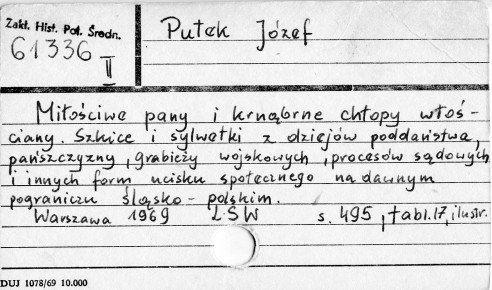 Zakł. Hist. Pol. Średn.
61336
II
Putek Józef
Miłościwe pany i krnąbrne chłopy włoś-
ciany. Szkice i sylwetki z dziejów poddaństwa,
pańszczyzny, grabieży wojskowych, procesów sądowych
i innych form ucisku społecznego na dawnym
pograniczu śląsko-polskim.
Warszawa 1969 LSW s. 495, tabl. 17, ilustr.
DUJ 1078/69 10.000